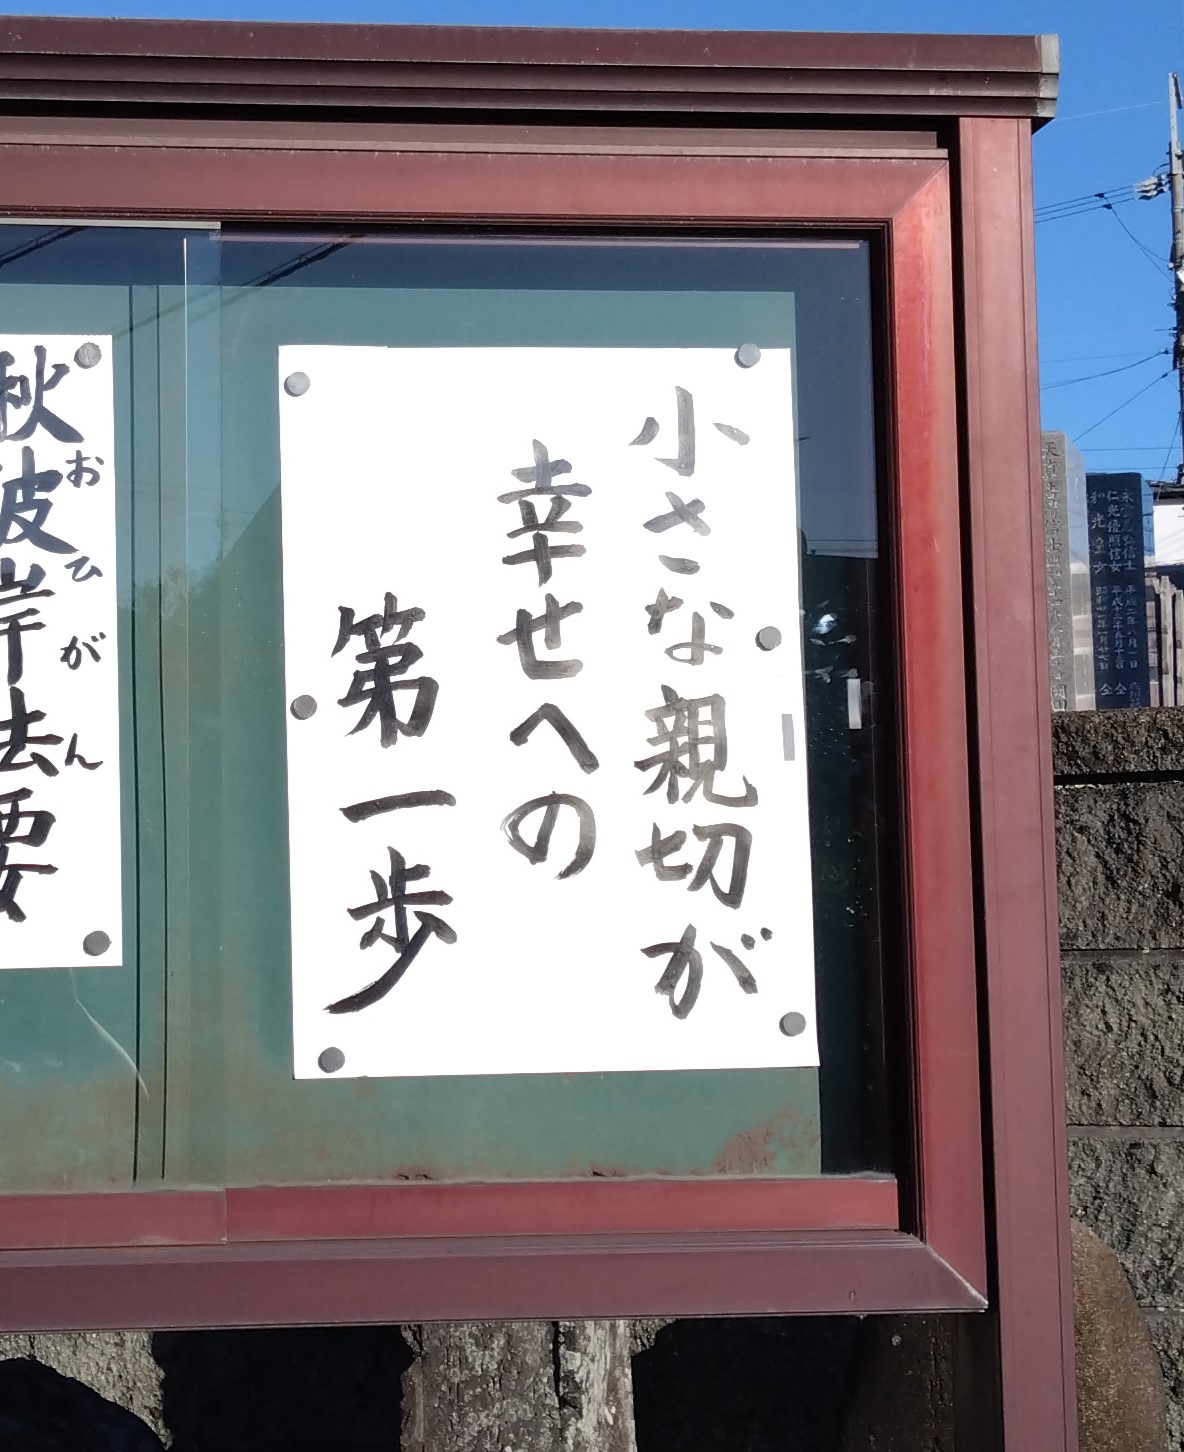 小さな親切が
幸せへの
第一歩
秋彼岸法要
おひがん